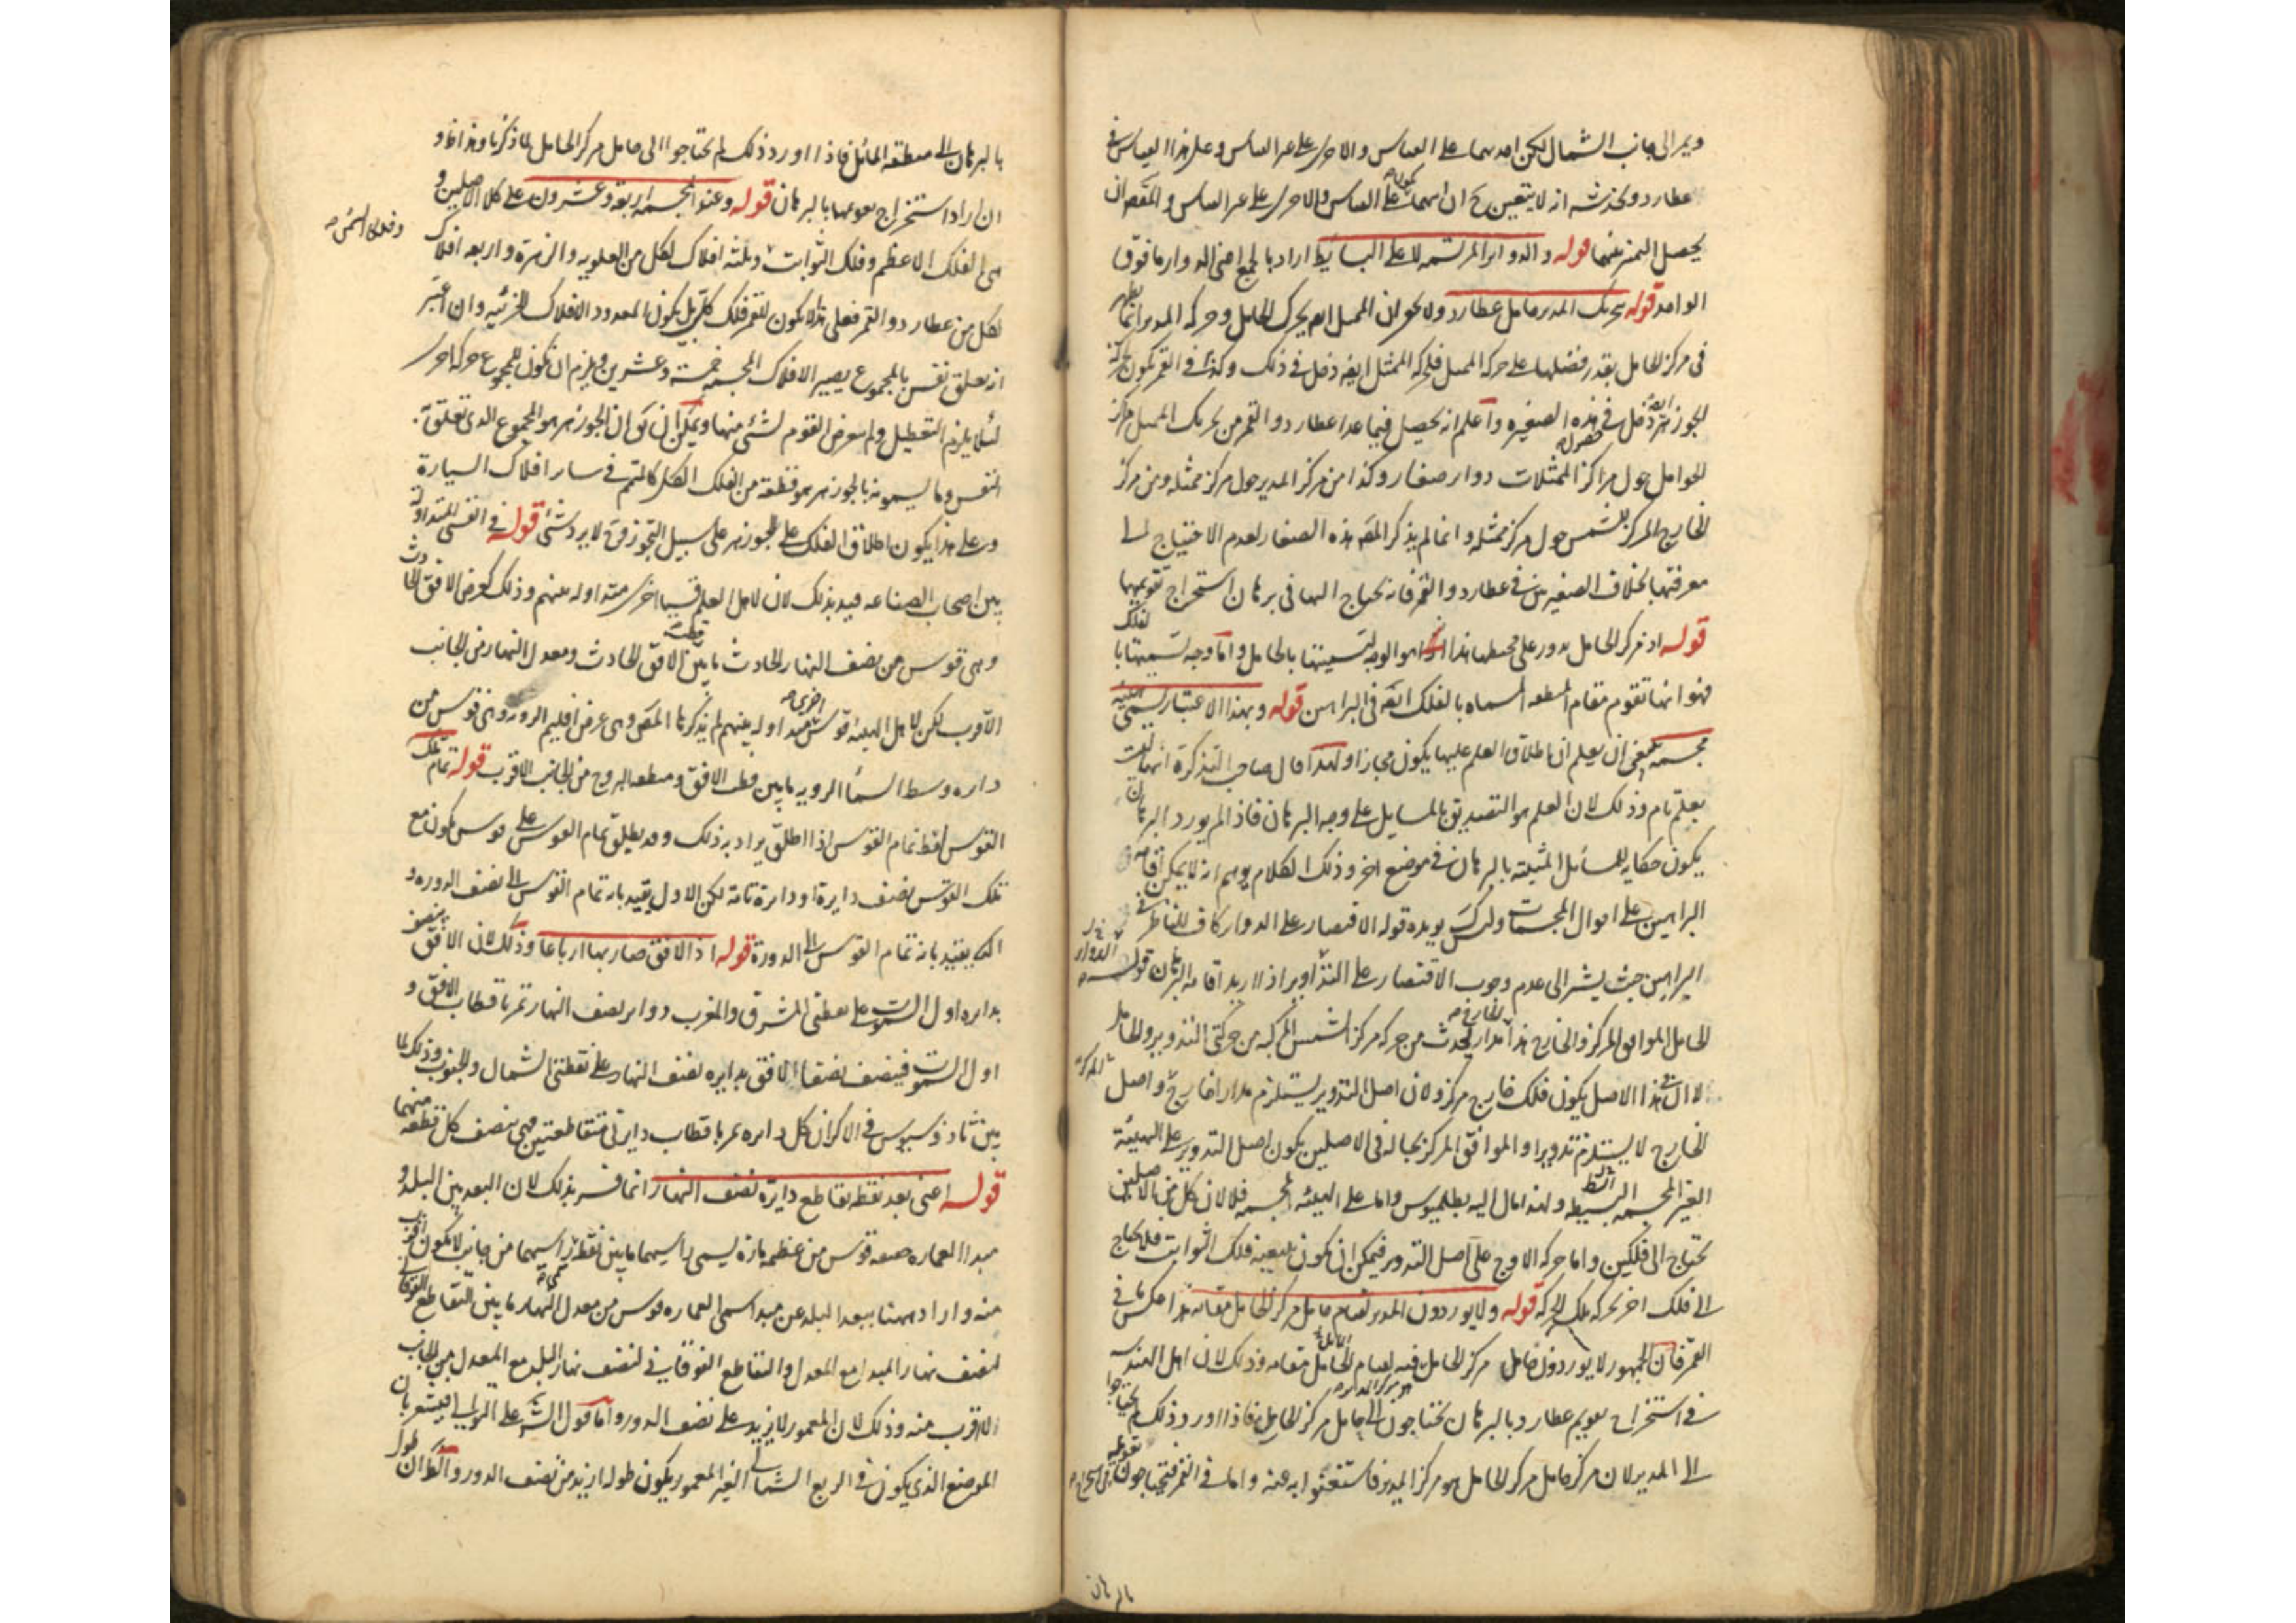 ويمر الى جانب الشمال لكن احدهما على القياس والاخرى على غير القياس وعلى هذا القياس في
عطارد وتحدسه انه لا يتعين ح ان ايهما على القياس والاخرى على غير القياس والمقصد ان
يحصل التميز بينهما قوله والدواير المرتسمة على البسايط اراد بالجمع اعنى الدواير ما فوق
الواحد قوله تحريك المدير حامل عطارد ولا يخفى ان الممثل ايضا يحرك الحامل وحركة المدير انما يظهر
فى مركز الحامل بقدر فضلها على حركة الممثل فلحركة الممثل ايضا دخل فى ذلك وكذا فى القمر يكون لحركة
الجوزهر ايضا دخل فى هذه الصغيرة واعلم انه يحصل فيما عدا عطارد والقمر من تحريك الممثل مراكز
الحوامل حول مراكز الممثلات دوار صغار وكذا من مركز المدير حول مركز ممثله ومن مركز
الخارج المركز للشمس حول مركز ممثله وانما لم يذكر المص هذه الصغار لعدم الاحتياج الى
معرفتها بخلاف الصغيرتين فى عطارد والقمر فانه يحتاج اليها فى برهان استخراج تقويمها
قوله اذ مركز الحامل يدور على محيطها هذا هو الوجه لتسميتها بالحامل واما وجه تسميتها بالفلك
فهو انها تقوم مقام المنطقة المسماة بالفلك ايضا فى البراهين قوله وبهذا الاعتبار يسمى هيئة
مجسمة ينبغى ان يعلم ان اطلاق العلم عليها يكون مجازا ولهذا قال صاحب التذكرة انها ليست
بعلم تام وذلك لان العلم هو التصديق بالمسايل على وجه البرهان فاذا لم يورد البرهان
يكون حكاية للمسائل المثبتة بالبرهان فى موضع اخر وذلك الكلام يوهم انه لا يمكن اقامة
البراهين على احوال المجسمات وليس كك يويده قوله الاقتصار على الدواير كاف للناظر فى
البراهين حيث يشير الى عدم وجوب الاقتصار على الدواير اذا اريد اقامة البرهان قوله
الحامل الموافق المركز والخارج هذا مدار يحدث من حركة مركز الشمس المركبة من حركتى التدوير والحامل
لا ان فى هذا الاصل يكون فلك خارج مركز ولان اصل التدوير يستلزم مدارا خارج واصل
الخارج لا يستلزم تدويرا والموافق المركز بحاله فى الاصلين يكون اصل التدوير على الهيئة
الغير المجسمة البسيطة ولهذا مال اليه بطلميوس واما على الهيئة المجسمة فلا لان كل من الاصلين
تحتاج الى فلكين واما حركة الاوج على اصل التدوير فيمكن ان يكون بتبعية فلك الثوابت فلا يحتاج
الى فلك اخر يحركه تلك الحركة قوله ولا يوردون المدير لقيام حامل مركز الحامل مقامه هذا عكس ما فى
القمر فان الجمهور لا يوردون حامل مركز الحامل فيه لقيام المايل مقامه وذلك لان اهل الهندسة
فى استخراج تقويم عطارد بالبرهان تحتاجون الى حامل مركز الحامل فاذا اورد ذلك لم يحتاجوا
الى المدير لان مركز حامل مركز الحامل هو مركز المدير فاستغنوا به عنه واما فى القمر فيحتاجون
بالبرهان
بالبرهان الى منطقة المائل فاذا اورد ذلك لم يحتاجوا الى حامل مركز الحامل لما ذكرنا وهذا
ان اراد استخراج تقويمها بالبرهان قوله وعنوا المجسمة اربعة وعشرون على كلا الاصلين و
هى الفلك الاعظم وفلك الثوابت وثلثة افلاك لكل من العلوية والزهرة واربعة افلاك
وفلكا الشمس صح
لكل من عطارد والقمر فعلى هذا لا يكون للقمر فلك كلى بل يكون المعدود الافلاك الجزئية وان اعتبر
انه تعلق نفس بالمجموع يصير الافلاك المجسمة خمسة وعشرين ويلزم ان تكون للمجموع حركة اخرى
لئلا يلزم التعطيل ولم يتعرض القوم لشئ منها ويمكن ان يق ان الجوزهر هو المجموع الذى تعلق به
النفس وما يسمونه بالجوزهر هو قطعة من الفلك الكل كالمتمم فى ساير افلاك السيارة
وعلى هذا يكون اطلاق الفلك على الجوزهر على سبيل التجوز وح لا يرد شئ قوله فى القسى المتداولة
بين اصحاب الصناعة قيد بذلك لان لاهل العلم قسيا اخرى متداوله بينهم وذلك كعرض الافق الحادث
وهى قوس من نصف النهار الحادث ما بين قطب الافق الحادث ومعدل النهار من الجانب
الاقرب لكن لاهل الهيئة قوس اخرى متداوله بينهم لم يذكرها المص وهى عرض اقليم الروية وهى قوس من
دايره وسط السماء الروية ما بين قطب الافق ومنطقة البروج من الجانب الاقرب قوله تمام تلك
القوس لفظ تمام القوس اذا اطلق يراد به ذلك وقد يطلق تمام القوس على قوس يكون مع
تلك القوس نصف دايرة او دائرة تامة لكن الاول يقيد بانه تمام القوس الى نصف الدوره و
الثانى يقيد بانه تمام القوس الى الدورة قوله اذ الافق صار بهما ارباعا وذلك لان الافق ينصف
بدايره اول السموت على نقطتى المشرق والمغرب ودواير نصف النهار تمر باقطاب الافق و
اول السموت فينصف نصفا الافق بدايره نصف النهار على نقطتى الشمال والجنوب وذلك لما
بين ثاوذسيوس فى الاكر ان كل دايره تمر باقطاب دايرتى متقاطعتين فهى تنصف كل قطعة منهما
قوله اعنى بعد نقطة تقاطع دايرة نصف النهار انما فسر بذلك لان البعد بين البلد و
مبدا العمارة حقيقة قوس من عظيمة مارة بسمتى رأسيهما ما بين نقطتى رأسيهما من جانب لا يكون اقرب
منه واراد ههنا ببعد البلد عن مبدا العماره قوس من معدل النهار ما بين التقاطع الفوقانى
لنصف نهار المبدا مع المعدل والتقاطع الفوقانى لنصف نهار البلد مع المعدل من الجانب
الاقرب منه وذلك لان المعمور لا يزيد على نصف الدور واما قول الش على التوالى فيشعر بان
الموضع الذى يكون فى الربع الشمالى الغير المعمور يكون طوله ازيد من نصف الدور والظ ان طول